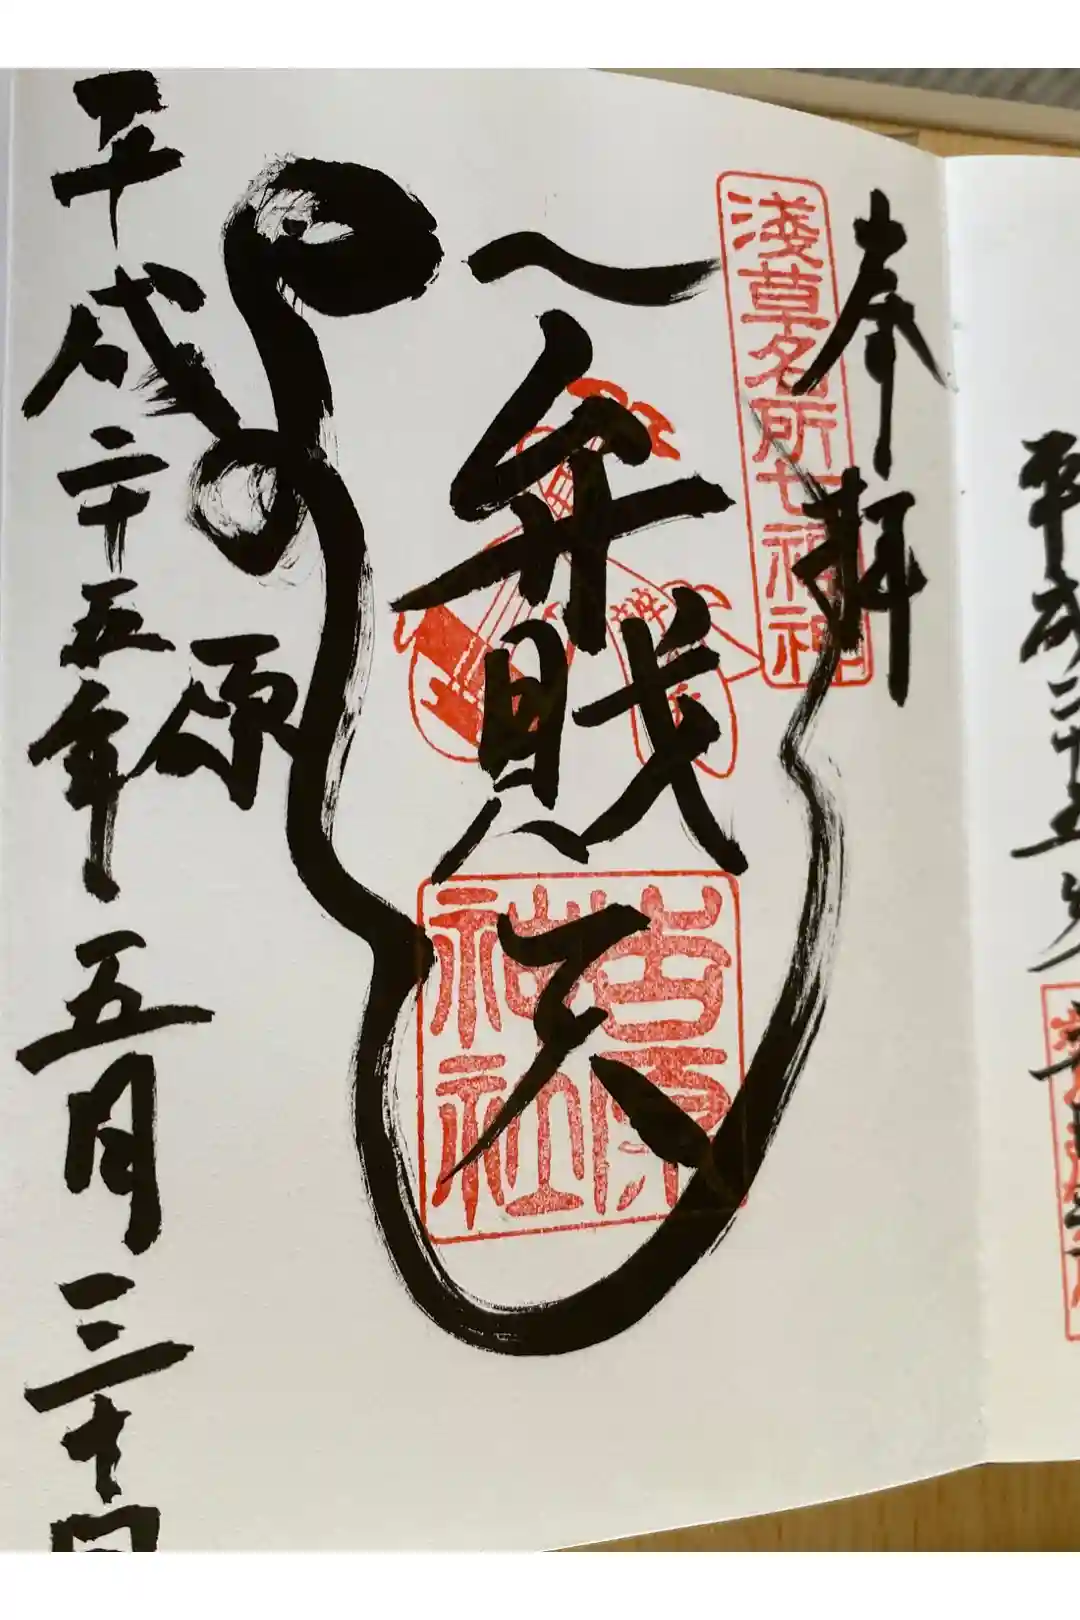 平成二十五
奉拝
淺草名所七福神
弁財天
吉原神社
原
平成二十五年五月三十日